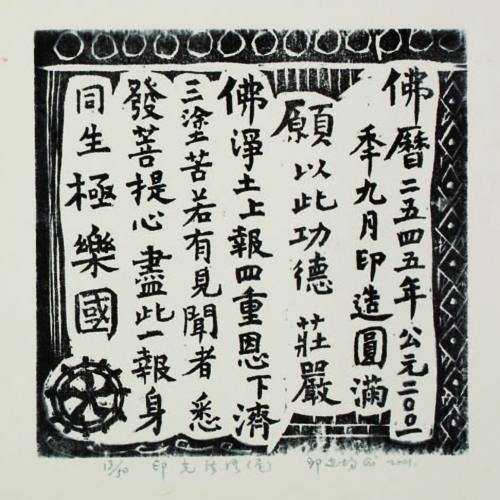 佛曆二五四五年公元二〇〇一
秊九月印造圓滿
願以此功德莊嚴
佛淨土上報四重恩下濟
三塗苦若有見聞者悉
發菩提心盡此一報身
同生極樂國
13/50 印光 2001.